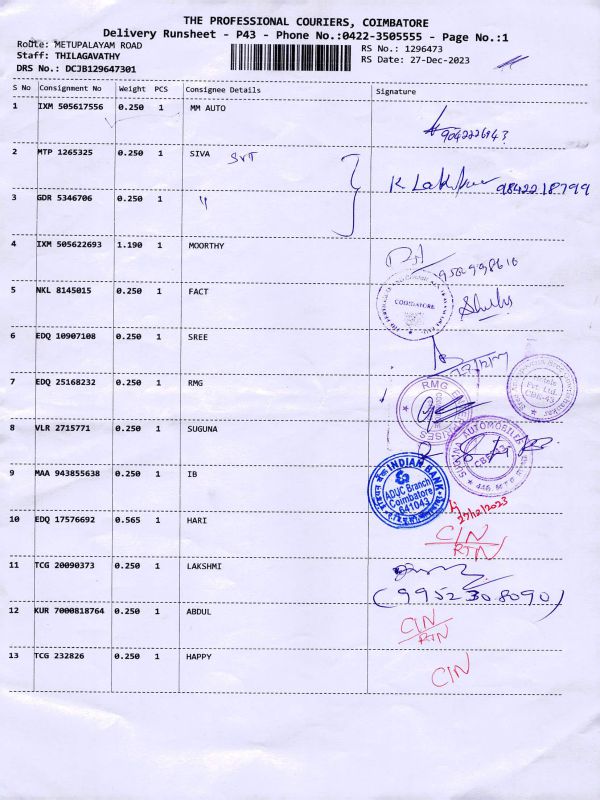 THE PROFESSIONAL COURIERS, COIMBATORE
Delivery Runsheet - P43 - Phone No.:0422-3505555 - Page No.:1
Route: METUPALAYAM ROAD RS No.: 1296473
Staff: THILAGAVATHY RS Date: 27-Dec-2023
DRS No.: DCJB129647301
S No Consignment No Weight PCS Consignee Details Signature
1 IXM 505617556 0.250 1 MM AUTO
9042226143
2 MTP 1265325 0.250 1 SIVA SVT
K 9842218799
3 GDR 5346706 0.250 1 "
4 IXM 505622693 1.190 1 MOORTHY
9502998610
5 NKL 8145015 0.250 1 FACT
COIMBATORE
6 EDQ 10907108 0.250 1 SREE
27/12/
Pvt. Ltd.
CBE-43
7 EDQ 25168232 0.250 1 RMG
RMG
8 VLR 2715771 0.250 1 SUGUNA
SUGUNA AUTOMOBILES
9 MAA 943855638 0.250 1 IB
INDIAN BANK
ADUC Branch
Coimbatore
641043
27/12/2023
10 EDQ 17576692 0.565 1 HARI
CIN
RTN
11 TCG 20090373 0.250 1 LAKSHMI
(9952308090)
12 KUR 7000818764 0.250 1 ABDUL
CIN
RTN
13 TCG 232826 0.250 1 HAPPY
CIN